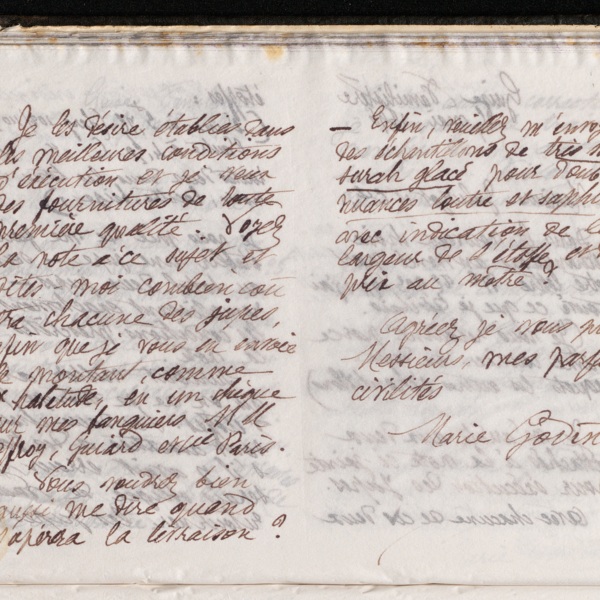 Je les désire établies dans
les meilleures conditions
d'exécution et je veux
des fournitures de toute
première qualité. Voyez
la note à ce sujet et
dites moi combien cou
tra chacune des jupes,
afin que je vous en envoie
le montant, comme
d'habitude, en un chèque
sur mes banquiers MM
Lefroy, Guiard et Cie Paris.
Vous voudrez bien
aussi me dire quand
s'opérera la livraison ?
— Enfin, veuillez m'envoy
des échantillons de très
surah glacé pour doub
nuances loutre et saphi
avec indication de l
largeur de l'étoffe et
prix au mètre ?
Agréez je vous pr
Messieurs, mes parf
civilités
Marie Godin